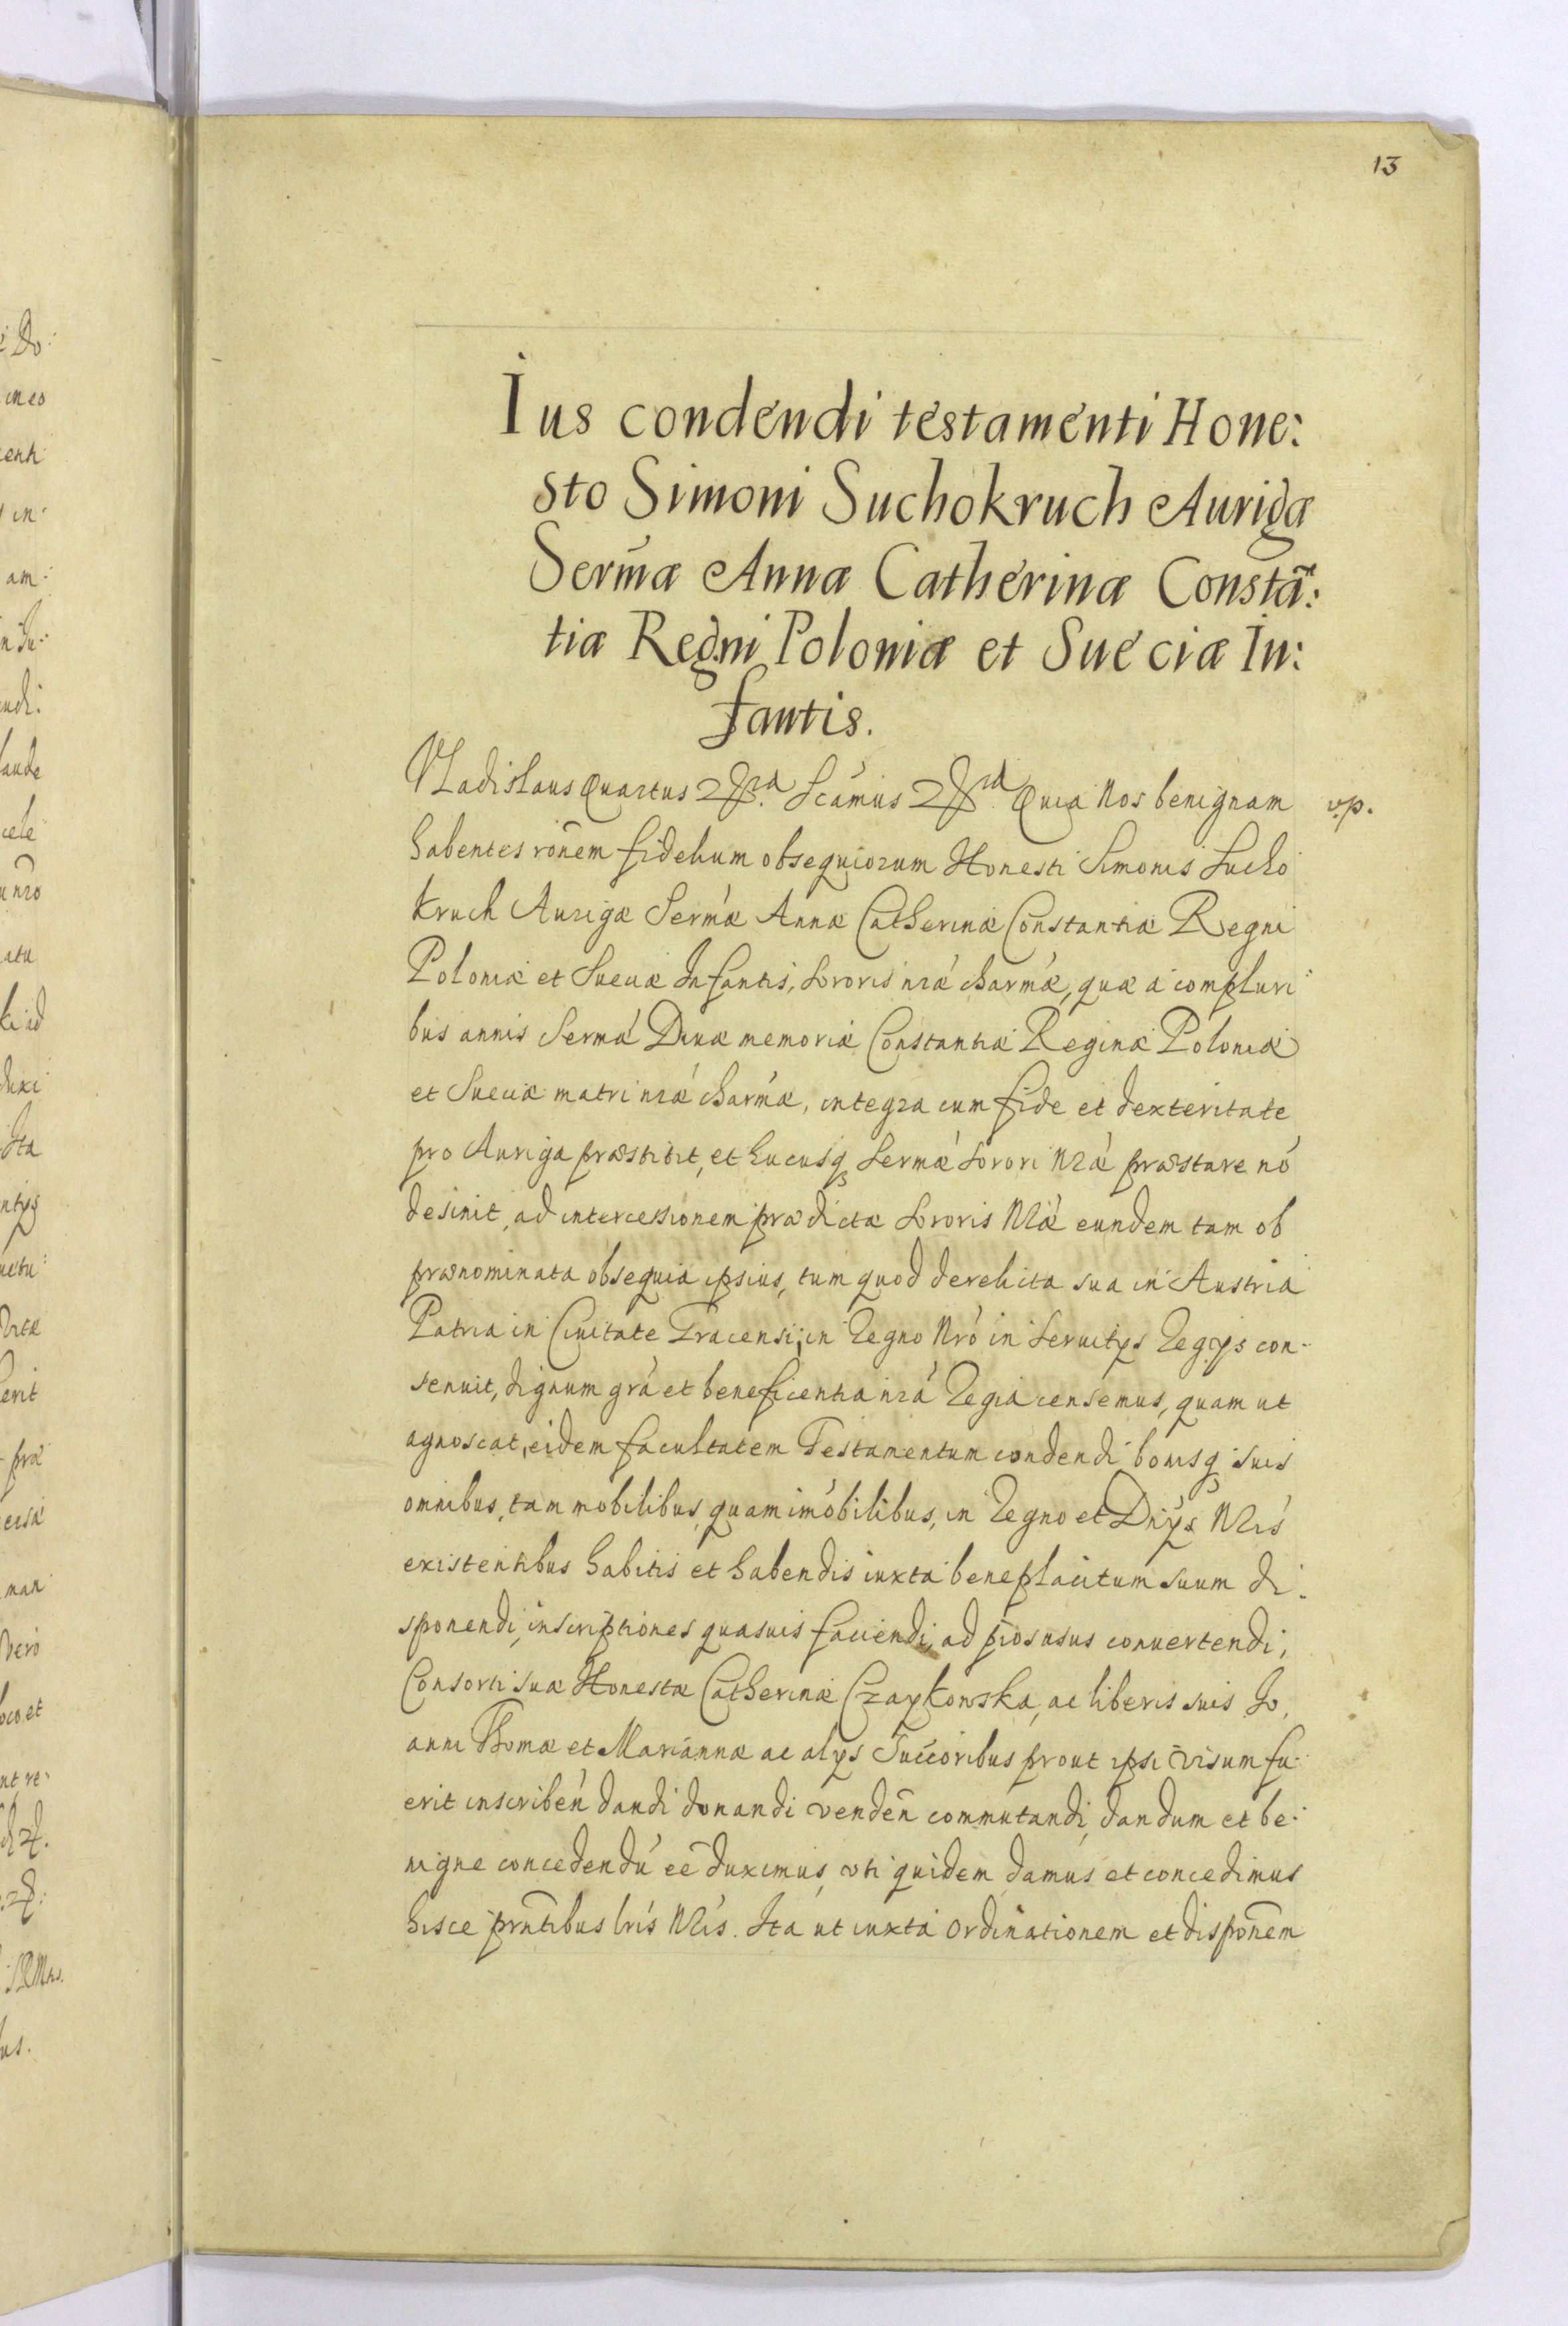 13
Ius condendi testamenti Hone:
sto Simoni Suchokruch Aurigæ
Serm̃æ Annæ Catherinæ Constã:
tiæ Regni Poloniæ et Sueciæ In:
fantis.
Vladislaus Quartus &ra Scámus &ra Quia Nos benignam v.p.
habentes rõnem fidelium obsequiorum Honesti Simonis Sucho
kruch Aurigæ Sermæ Annæ Catherinæ Constantiæ Regni
Poloniæ et Sueciæ Infantis, Sororis nræ charmæ, quæ a complуri
bus annis Sermæ Divæ memoriæ Constantiæ Reginæ Poloniæ
et Sueciæ matri nræ charmæ, integra cum fide et dexteritate
pro Auriga præstitit, et hucusq Sermæ Sorori Nræ præstare nó
desinit, ad intercessionem prædictæ Sororis Nræ eundem tam ob
prænominata obsequia ipsius, tum quod derelicta sua in Austria
Patria in Civitate Gracensi, in Regno Nró in Servitys Regys con-
senuit, dignum grá et beneficentia nrá Regia censemus, quam ut
agnoscat, eidem facultatem Testamentum condendi bonisq suis
omnibus, tam mobilibus, quam imóbilibus, in Regno et Dnÿs Nrís
existentibus habitis et habendis iuxta beneplacitum suum di-
sponendi, inscriptiones quasuis faciendi, ad pios usus conuertendi,
Consorti suæ Honestæ Catherinæ Czaykowska, ac liberis suis Jo,
anni Thomæ et Mariannæ ac alys Succoribus prout ipsi visum fu-
erit inscribeń dandi donandi vendeñ commutandi, dandum et be-
nigne concedendú eē duximus, uti quidem damus et concedimus
hisce prñtibus lrís Nrís. Ita ut iuxta ordinationem et disponẽm